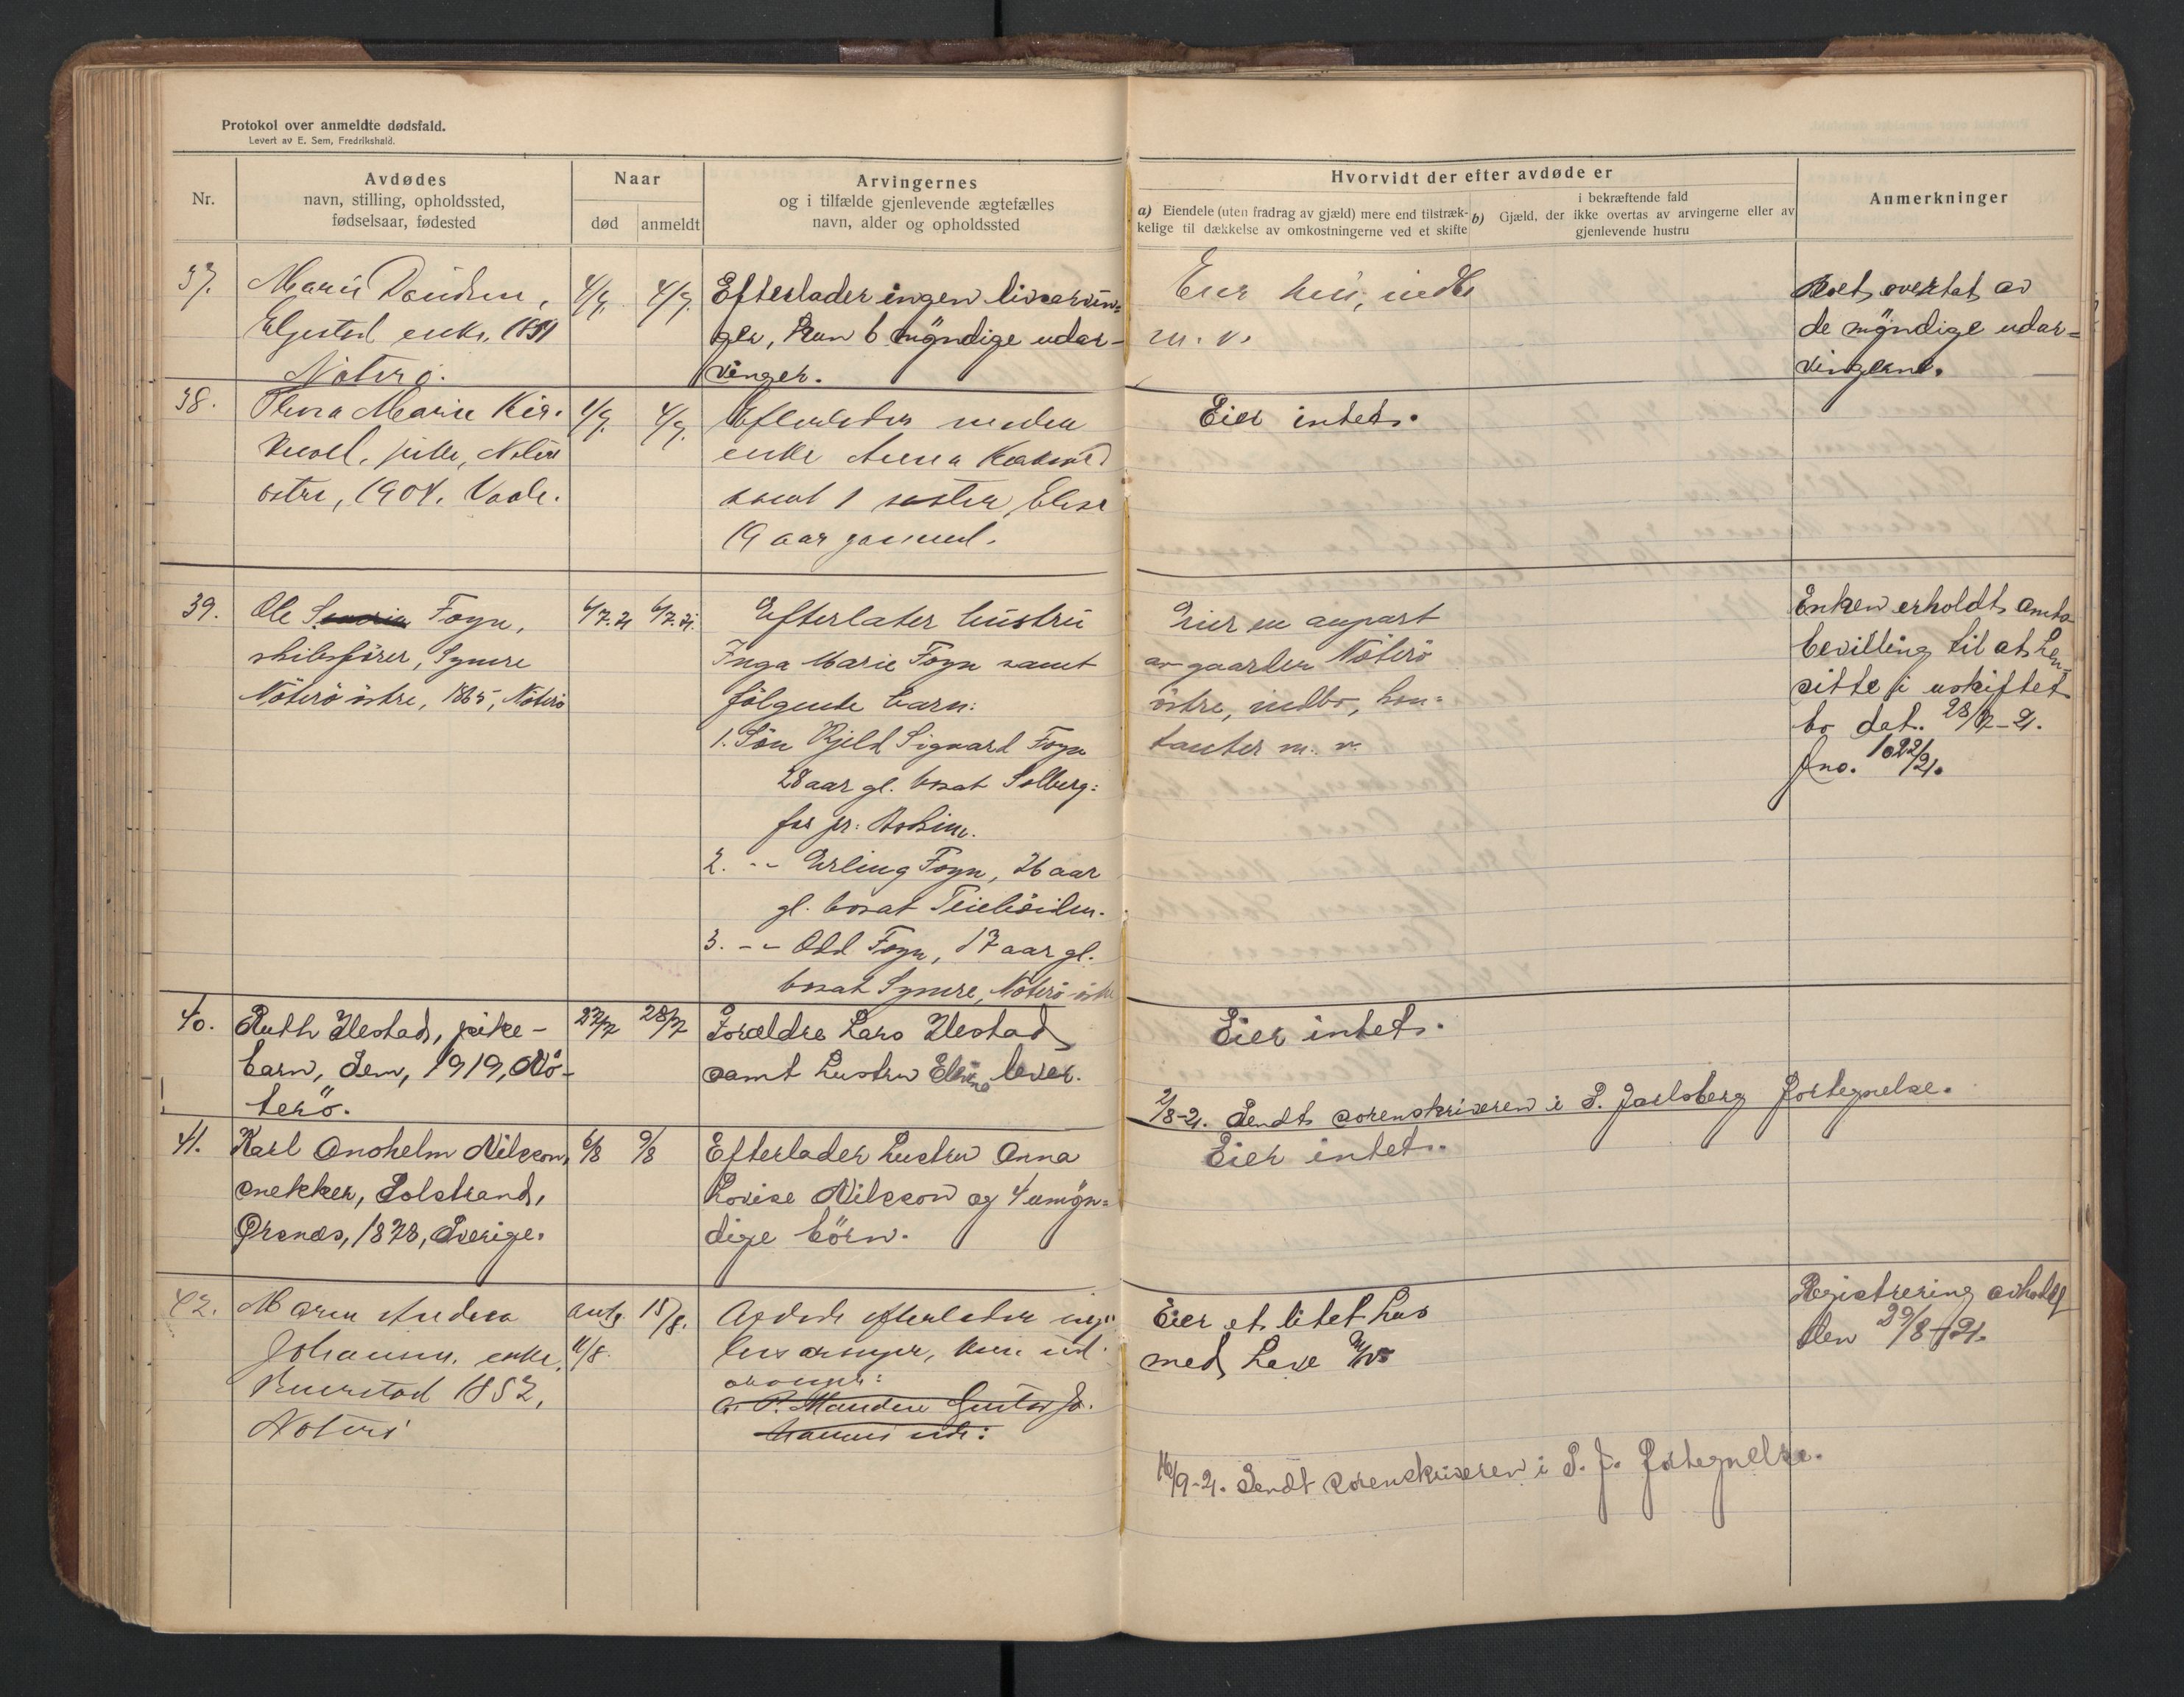 Protokol over anmeldte dødsfald.
Levert av E. Sem, Fredrikshald.
Nr.
Avdødes
navn, stilling, opholdssted,
fødselsaar, fødested
Naar
død
anmeldt
Arvingernes
og i tilfælde gjenlevende ægtefælles
navn, alder og opholdssted
Hvorvidt der efter avdøde er
a) Eiendele (uten fradrag av gjæld) mere end tilstræk-
kelige til dækkelse av omkostningerne ved et skifte
i bekræftende fald
b) Gjæld, der ikke overtas av arvingerne eller av
gjenlevende hustru
Anmerkninger
37.
Marie
enke,
Nøterø.
4/7. 4/7.
Efterlader ingen livsarvin=
ger, kun 6 myndige udar-
vinger.
Eier hus, indbo
m. v.
Boet overtat av
de myndige udar=
vingerne.
38.
Marie
østre, 1904. Vaale.
4/7.
Efterlader moder
enke Anna
samt 1 søster, Elise
19 aar gammel.
Eier intet.
39.
Ole Fogn,
skibsfører, Symre
Nøterø østre, 1865, Nøterø
6/7. 21 6/7. 21.
Efterlater hustru
Inga Marie Fogn samt
følgende barn:
1. Søn Kjeld Sigvard Fogn
28 aar gl. bosat Solberg=
fos pr: Askim.
2. -- Erling Fogn, 26 aar
gl. bosat Teiehøiden.
3. -- Odd Fogn, 17 aar gl.
bosat Symre, Nøterø østre
Eier en anpart
av gaarden Nøterø
østre, indbo, kon=
tanter m. v.
Enken erholdt amts
bevilling til at hen
sitte i uskiftet
bo dat. 28/7-21.
Jno. 1022/21.
40.
Ruth Ilestad, pike-
barn, Sem, 1919, Nø-
terø.
27/7 28/7
Forældre Lars Ilestad
samt hustru Elvine lever.
Eier intet.
2/8-21. Sendt sorenskriveren i S. Jarlsberg fortegnelse.
41.
Karl Anshelm Nilsson,
snekker, Solstrand,
Ørsnes, 1878, Sverige.
6/8 9/8
Efterlader hustru Anna
Lovise Nilsson og 4 umyn=
dige børn.
Eier intet.
42.
Maren Andrea
Johansen, enke,
1852,
Nøterø
11/8. 15/8.
Avdøde efterlater ing
livsarvinger, kun ud
arvinger:
Gustav Jo.
Eier et litet hus
med have m/v
Registrering avholdt
den 29/8-21.
16/9-21. Sendt sorenskriveren i S. J. fortegnelse.